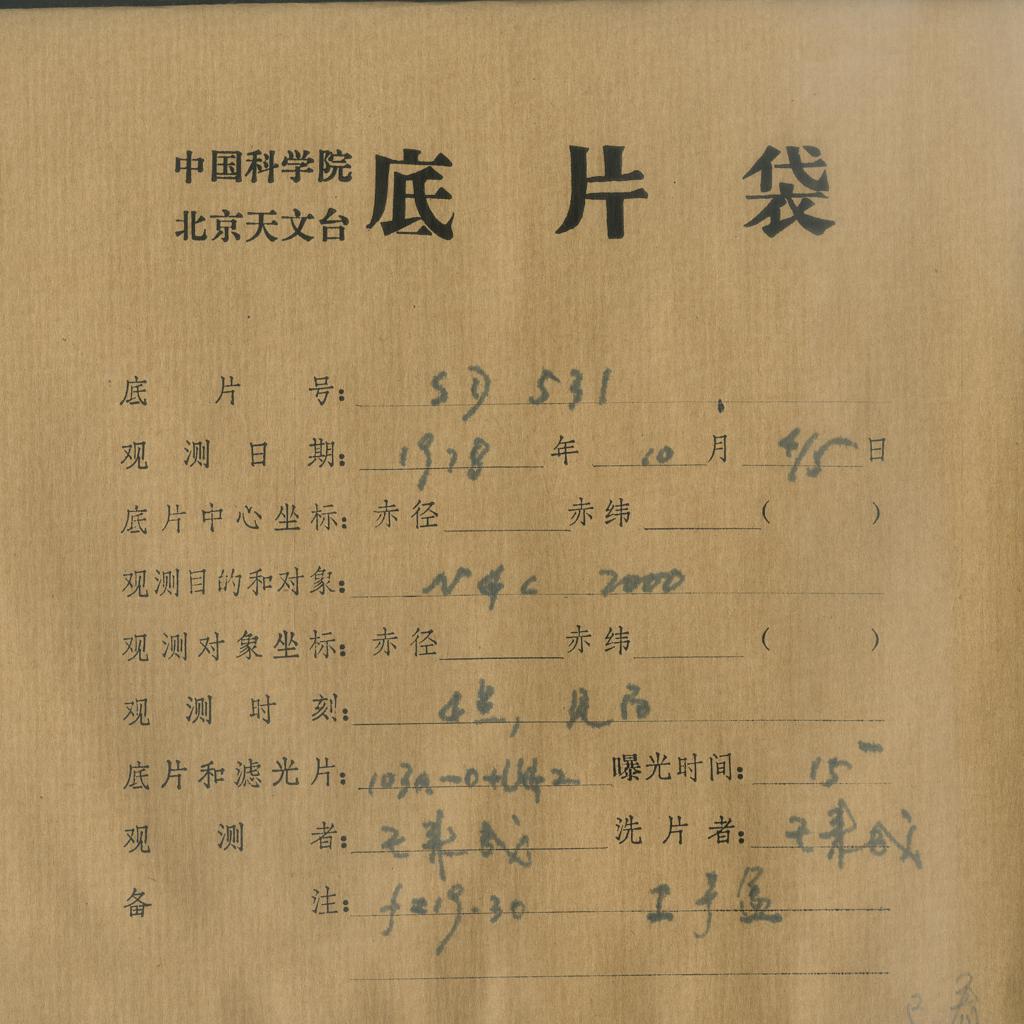 中国科学院
北京天文台
底片袋
底片号: SD 531
观测日期: 1978 年 10 月 4/5 日
底片中心坐标: 赤径 赤纬 ( )
观测目的和对象: 2000
观测对象坐标: 赤径 赤纬 ( )
观测时刻: 4点,见面
底片和滤光片: 103a-0+UG2 曝光时间: 15
观测者: 洗片者:
备注: f=19.30